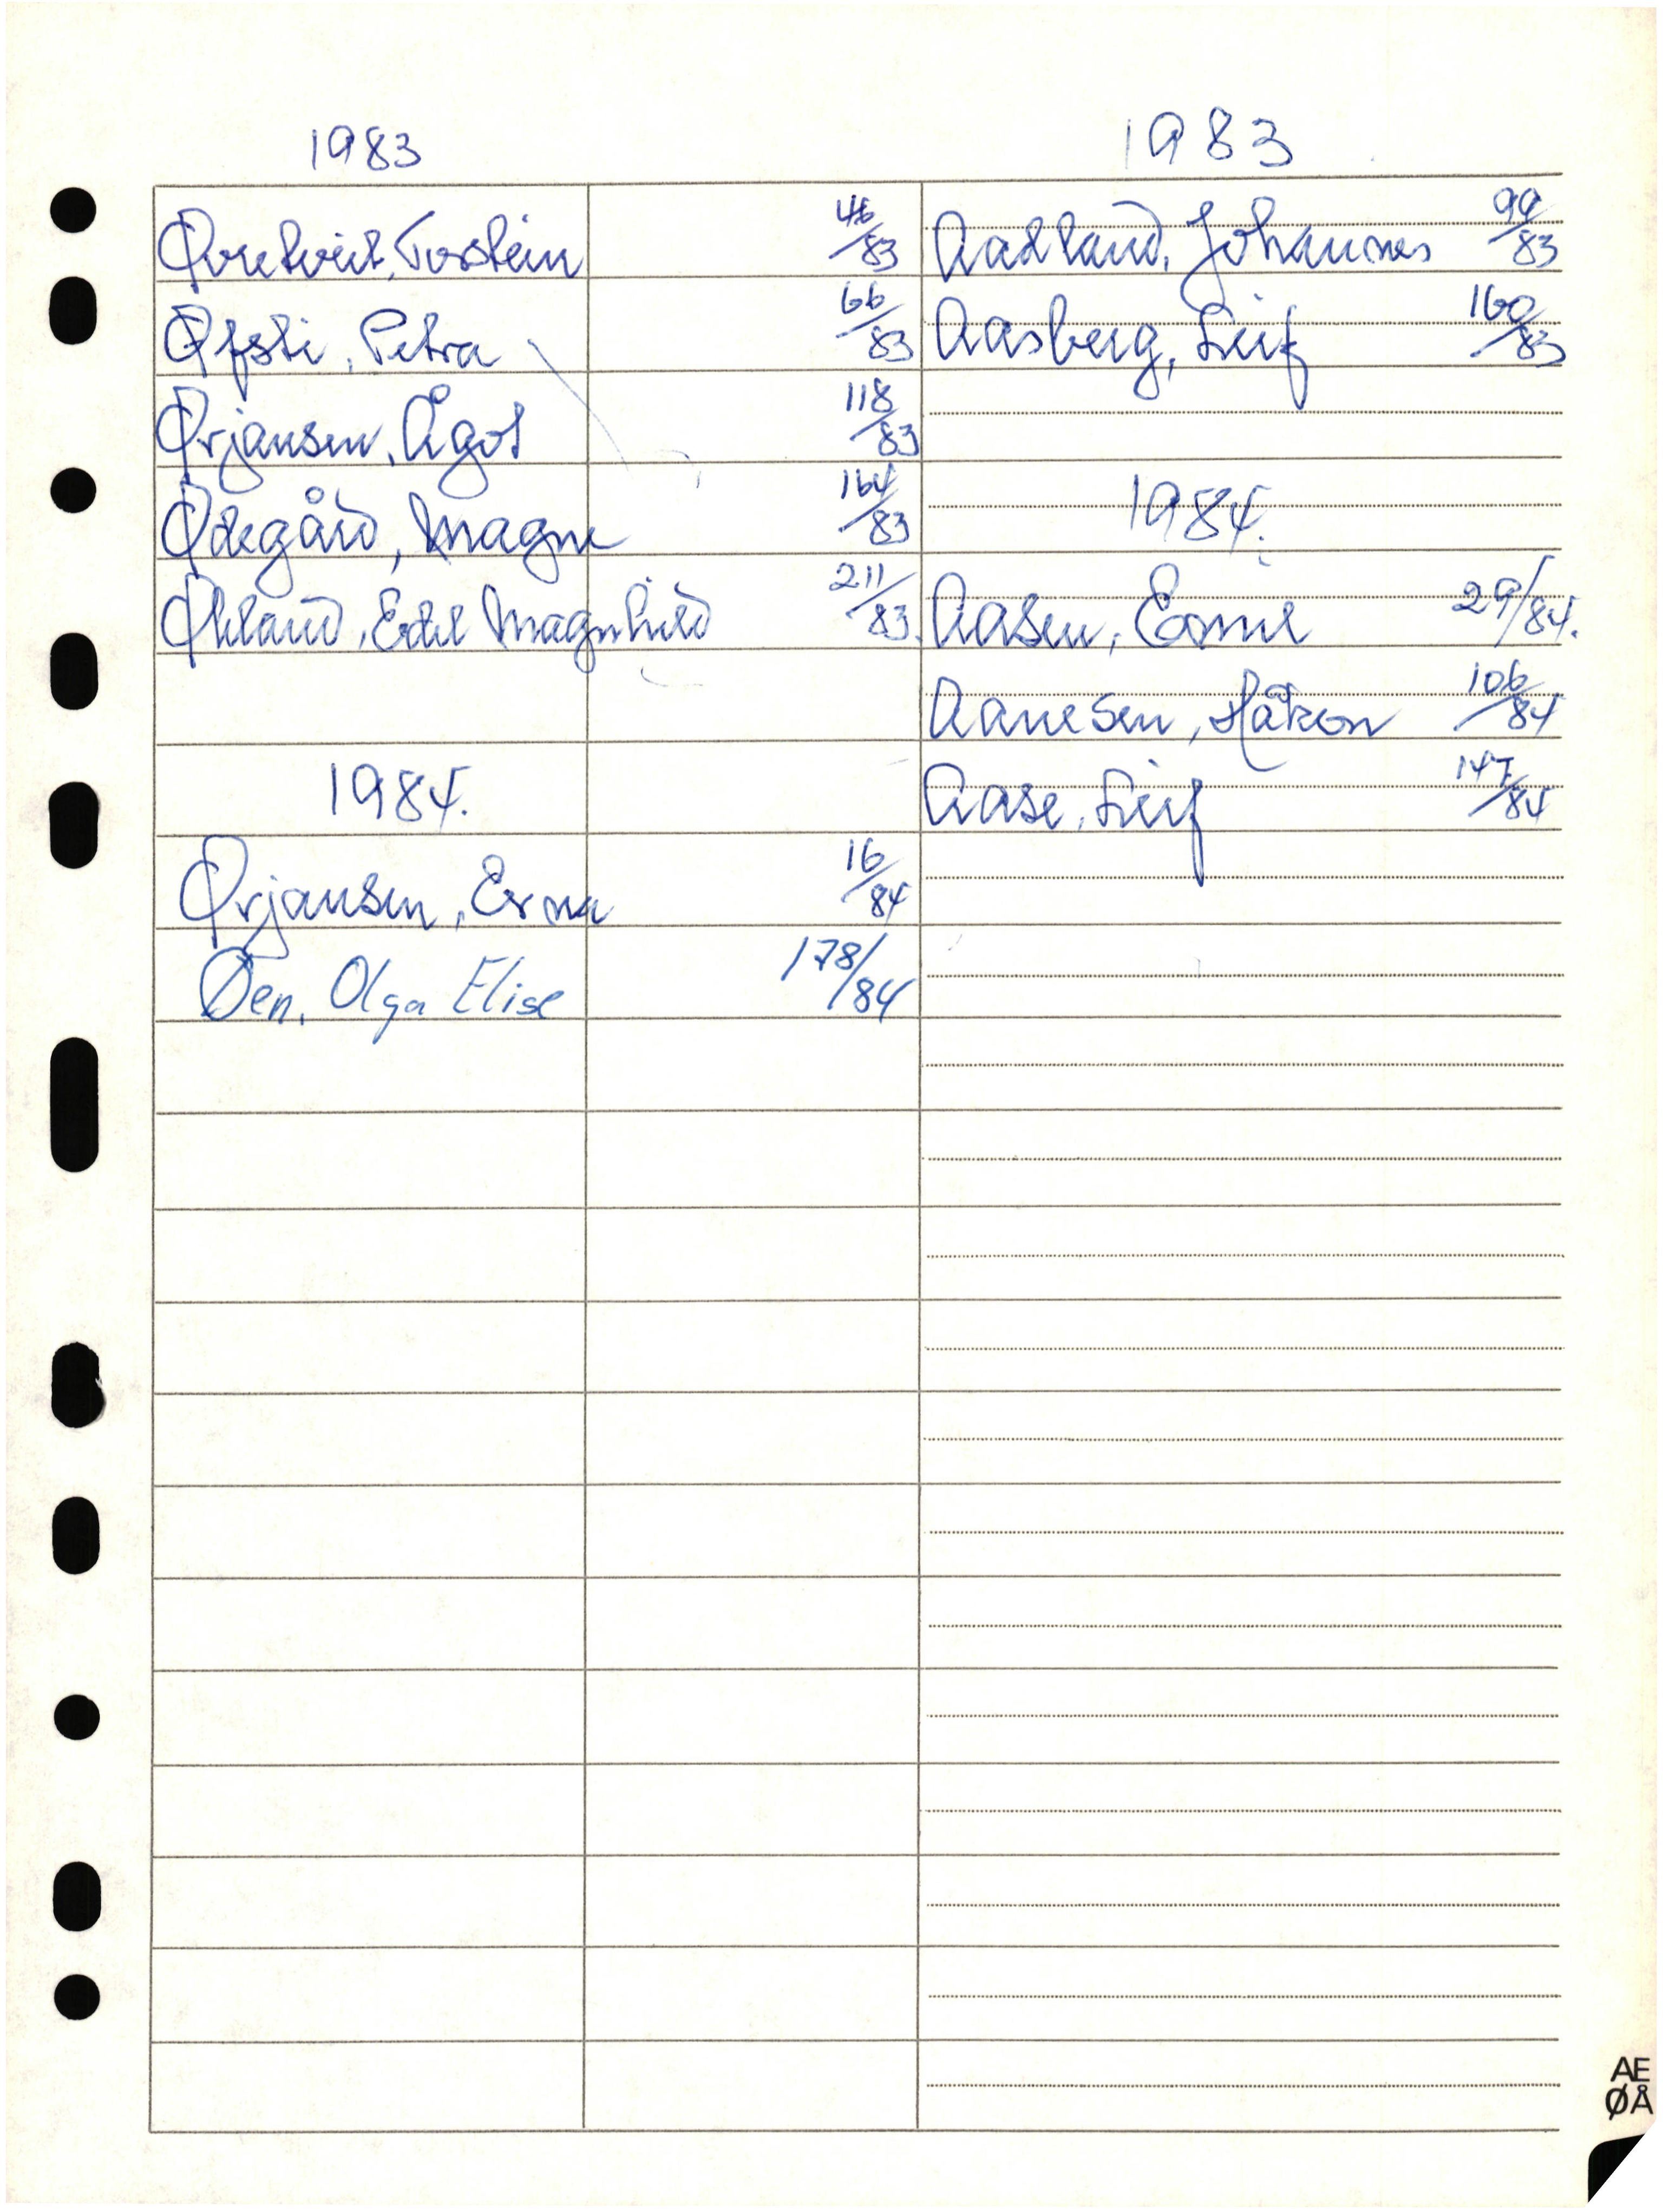 1983
Øvretveit, Torstein 46/83
Øfsti, Petra 66/83
Ørjansen, Ågot 118/83
Ødegård, Magne 164/83
Økland, Edel Magnhild 211/83.
1984.
Ørjansen, Erna 16/84
Øen, Olga Elise 178/84
1983
Aadland, Johannes 99/83
Aasberg, Leif 160/83
1984.
Aasen, 29/84.
Aanesen, Håkon 106/84
Aase, Leif 147/84
AE
ØÅ